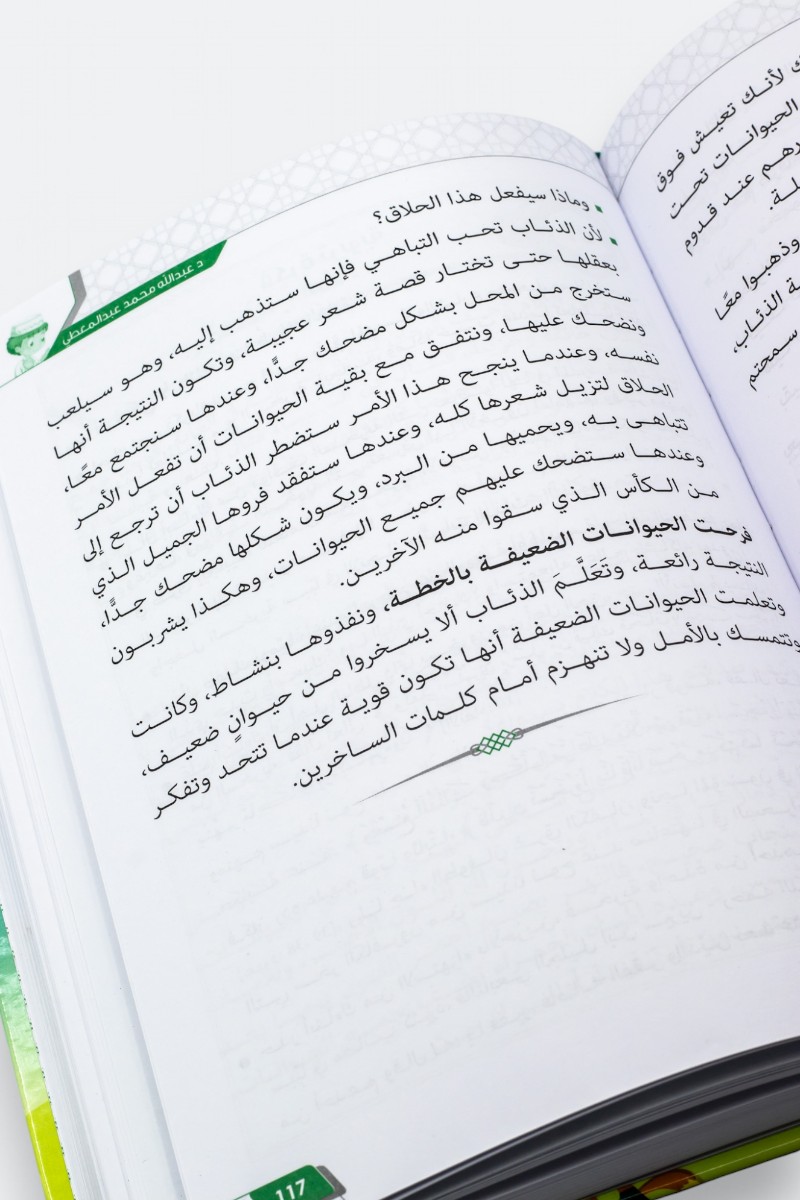 لأنك تعيش فوق
الحيوانات تحت
عند قدوم
وذهبوا معًا
الذئاب،
سمحتم
د عبدالله محمد عبدالمعطي
▪ وماذا سيفعل هذا الحلاق؟
▪ لأن الذئاب تحب التباهي فإنها ستذهب إليه، وهو سيلعب
بعقلها حتى تختار قصة شعر عجيبة، وتكون النتيجة أنها
ستخرج من المحل بشكل مضحك جدًّا، وعندها سنجتمع معًا،
ونضحك عليها، ونتفق مع بقية الحيوانات أن تفعل الأمر
نفسه، وعندما ينجح هذا الأمر ستضطر الذئاب أن ترجع إلى
الحلاق لتزيل شعرها كله، وعندها ستفقد فروها الجميل الذي
تتباهى به، ويحميها من البرد، ويكون شكلها مضحك جدًّا،
وعندها ستضحك عليهم جميع الحيوانات، وهكذا يشربون
من الكأس الذي سقوا منه الآخرين.
فرحت الحيوانات الضعيفة بالخطة، ونفذوها بنشاط، وكانت
النتيجة رائعة، وتَعَلَّمَ الذئاب ألا يسخروا من حيوانٍ ضعيف،
وتعلمت الحيوانات الضعيفة أنها تكون قوية عندما تتحد وتفكر
وتتمسك بالأمل ولا تنهزم أمام كلمات الساخرين.
117